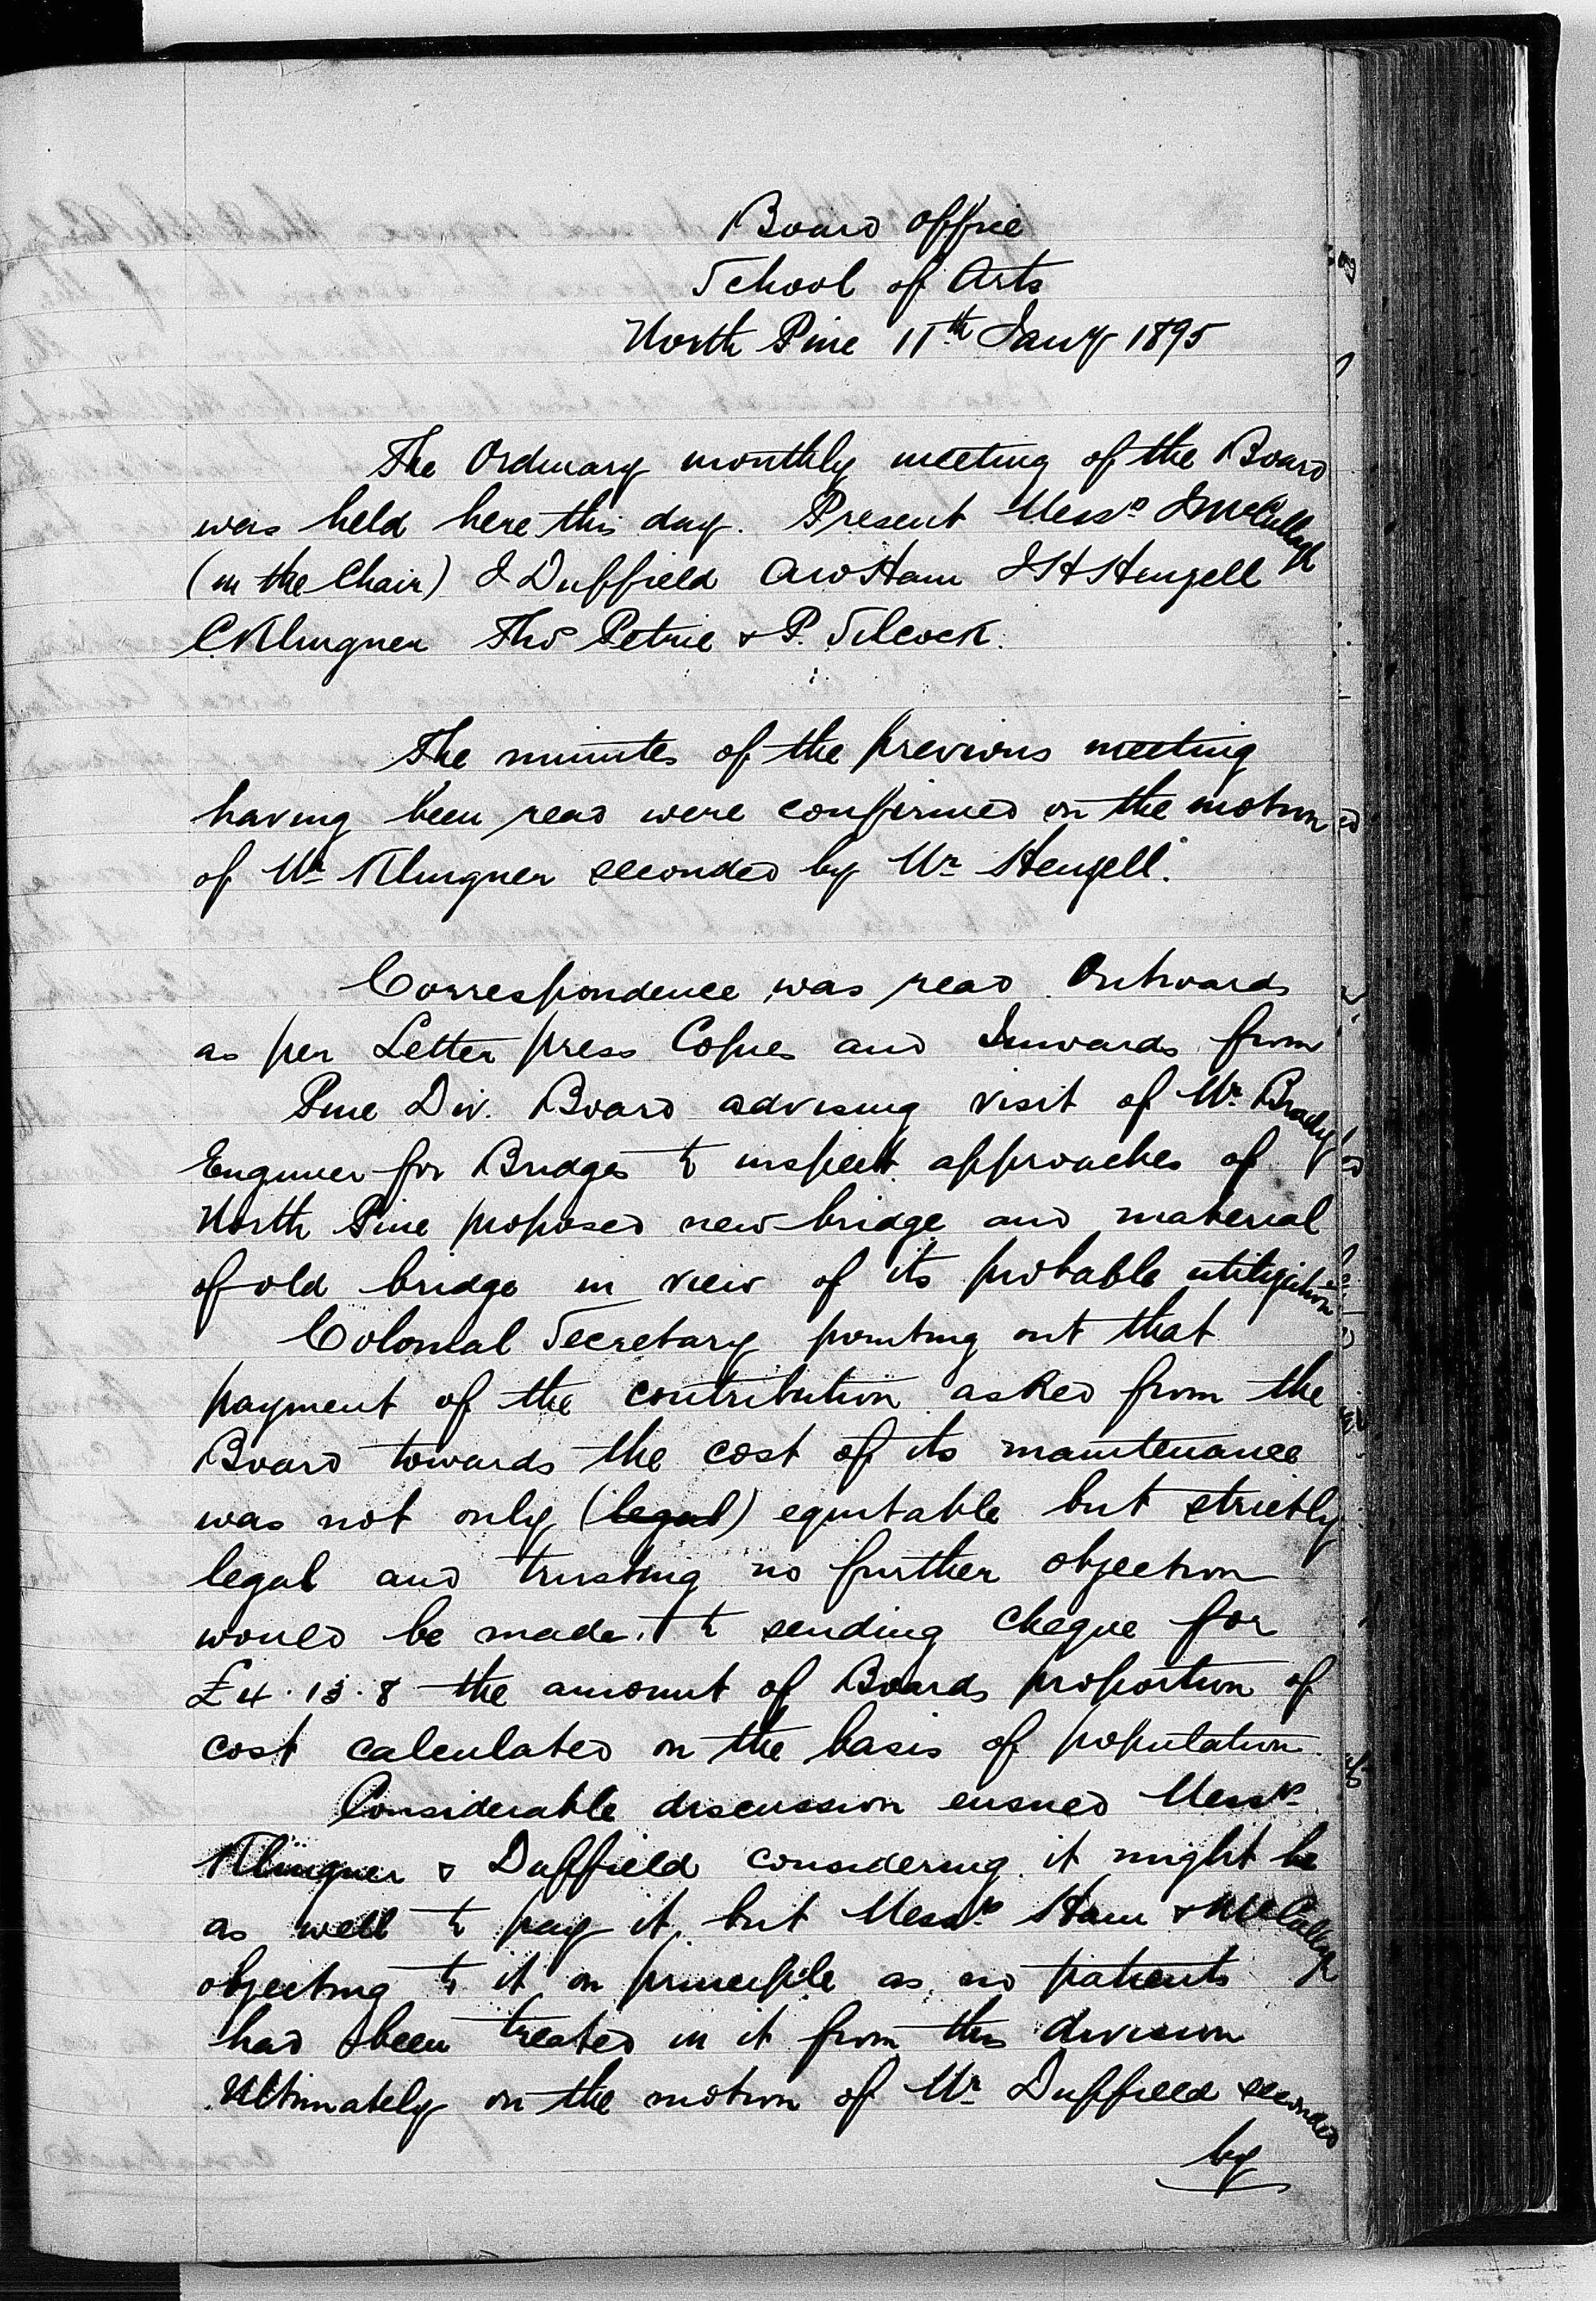 Board Office
School of Arts
North Pine 11th Jany 1895
The Ordinary monthly meeting of the Board
was held here this day. Present Messrs J McCullagh
(in the Chair) J Duffield A W Ham J H Stengell
C Klingner Thos Petrie & P. Silcock.
The minutes of the previous meeting
having been read were confirmed on the motion
of Mr Klingner seconded by Mr Stengell.
Correspondence was read. Outwards
as per Letter press Copies and Inwards from
Pine Div. Board advising visit of Mr Brady
Engineer for Bridges to inspect approaches of
North Pine proposed new bridge and material
of old bridge in view of its probable utilization
Colonial Secretary pointing out that
payment of the contribution asked from the
Board towards the cost of its maintenance
was not only (legal) equitable but strictly
legal and trusting no further objection
would be made to sending cheque for
£4.13.8 the amount of Boards proportion of
cost calculated on the basis of population.
Considerable discussion ensued Messrs
Klingner & Duffield considering it might be
as well to pay it, but Messrs Ham & McCullagh
objecting to it on principle as no patients
had been treated in it from this division
Ultimately on the motion of Mr Duffield seconded
by